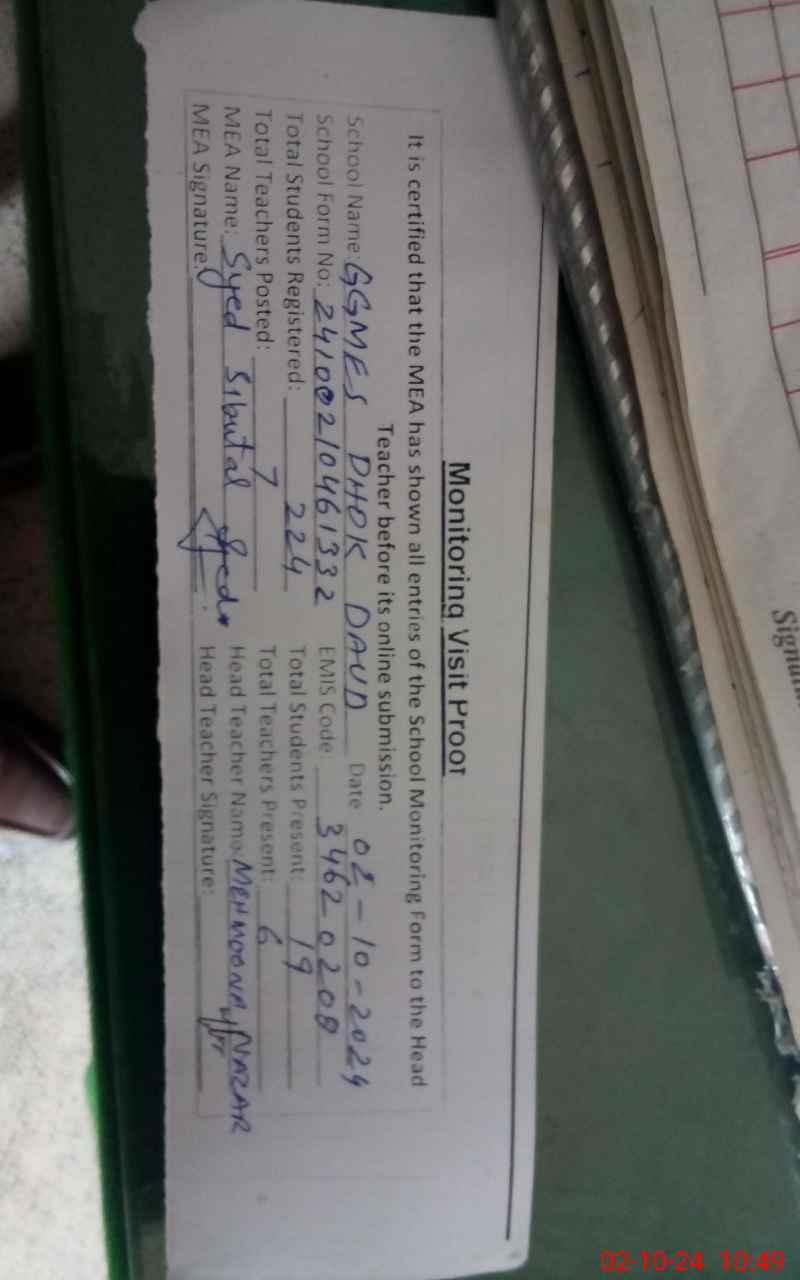 Monitoring Visit Proof
It is certified that the MEA has shown all entries of the School Monitoring Form to the Head
Teacher before its online submission.
School Name: GGMES DHOK DAUD Date 02-10-2024
School Form No: 24100210461332 EMIS Code: 34620208
Total Students Registered: 224 Total Students Present: 19
Total Teachers Posted: 7 Total Teachers Present: 6
MEA Name: Syed Sibutal Head Teacher Name: MEHMOONA NAZAR
MEA Signature: Head Teacher Signature:
02-10-24 10:49